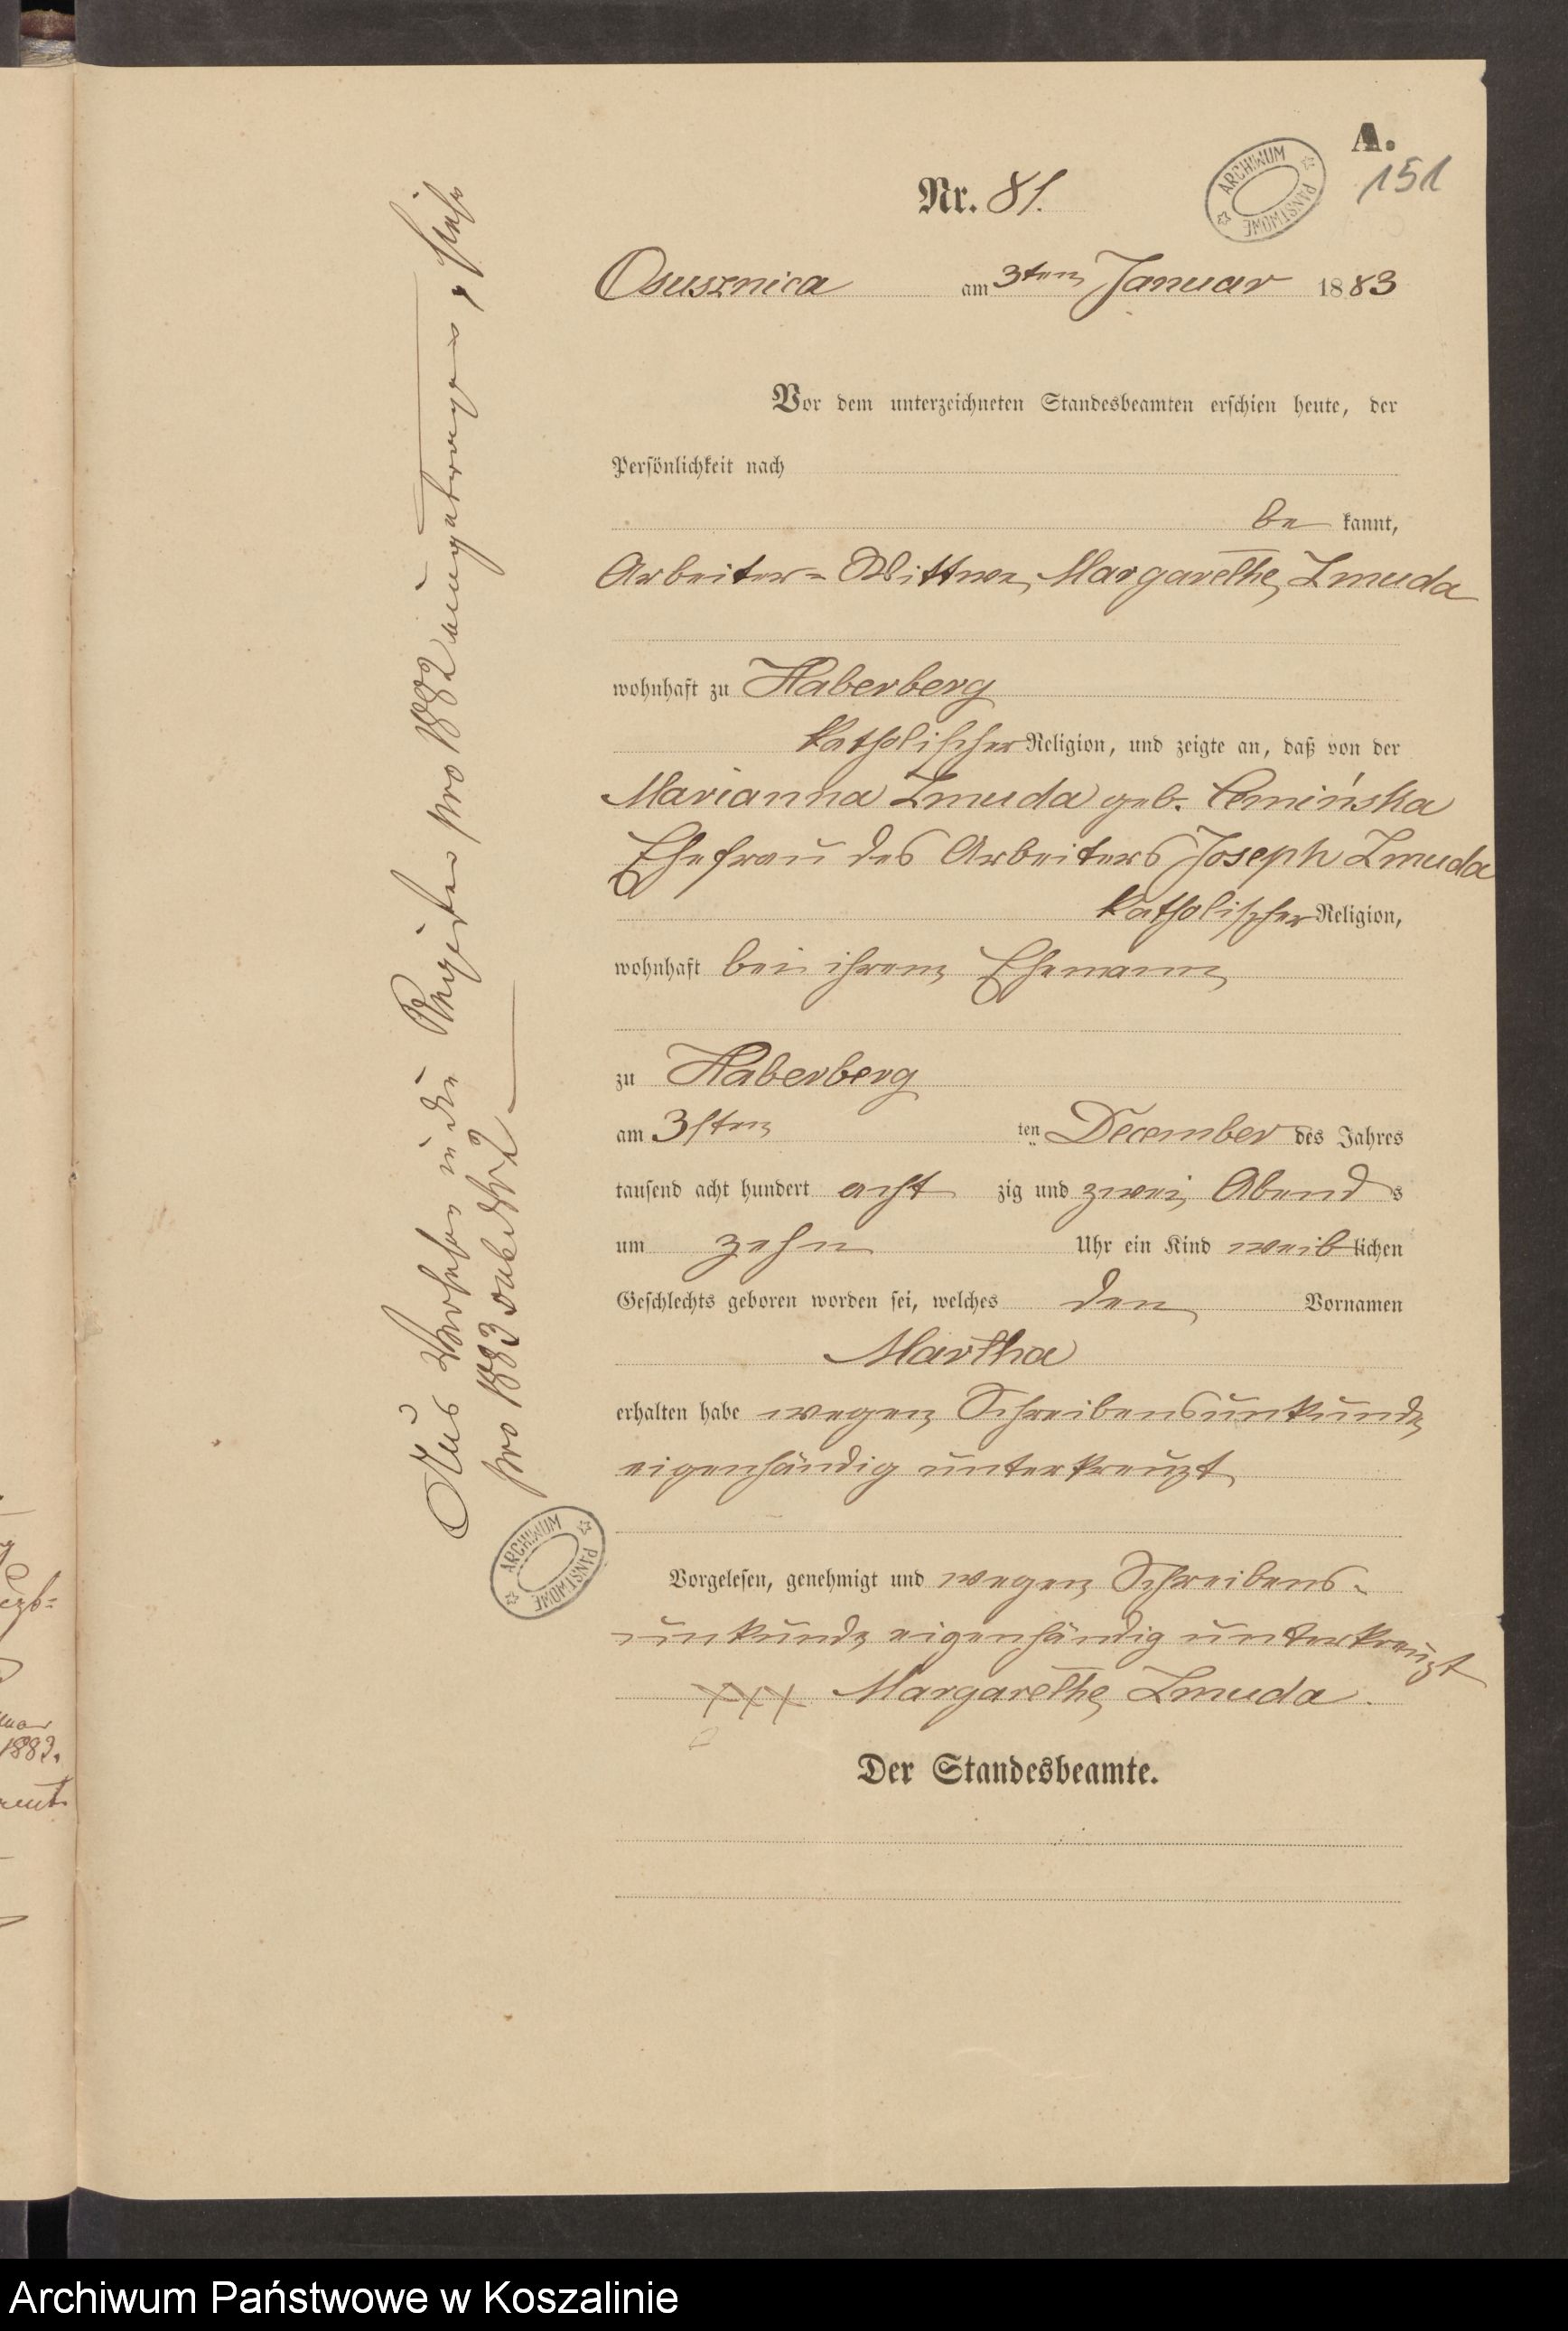 A.
151
ARCHIWUM PAŃSTWOWE
Nr. 81.
Osusznica am 3ten Januar 1883
Vor dem unterzeichneten Standesbeamten erschien heute, der
Persönlichkeit nach
be kannt,
Arbeiter-Wittwe Margarethe Zmuda
wohnhaft zu Haberberg
katholischer Religion, und zeigte an, daß von der
Marianna Zmuda geb.
Ehefrau des Arbeiters Joseph Zmuda
katholischer Religion,
wohnhaft bei ihrem Ehemann
zu Haberberg
am 31ten ten December des Jahres
tausend acht hundert acht zig und zwei Abend s
um zehn Uhr ein Kind weib lichen
Geschlechts geboren worden sei, welches den Vornamen
Martha
erhalten habe wegen Schreibensunkunde
eigenhändig unterkreuzt
Vorgelesen, genehmigt und wegen Schreibens-
unkunde eigenhändig unterkreuzt
XXX Margarethe Zmuda.
Der Standesbeamte.
Aus Versehen in die Register pro 1882 eingetragen, siehe
pro 1883 sub № 2
ARCHIWUM PAŃSTWOWE
1882.
Archiwum Państwowe w Koszalinie